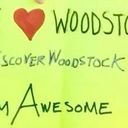 I ❤ WOODSTO
SCOVER WOODSTOCK
M AWESOME